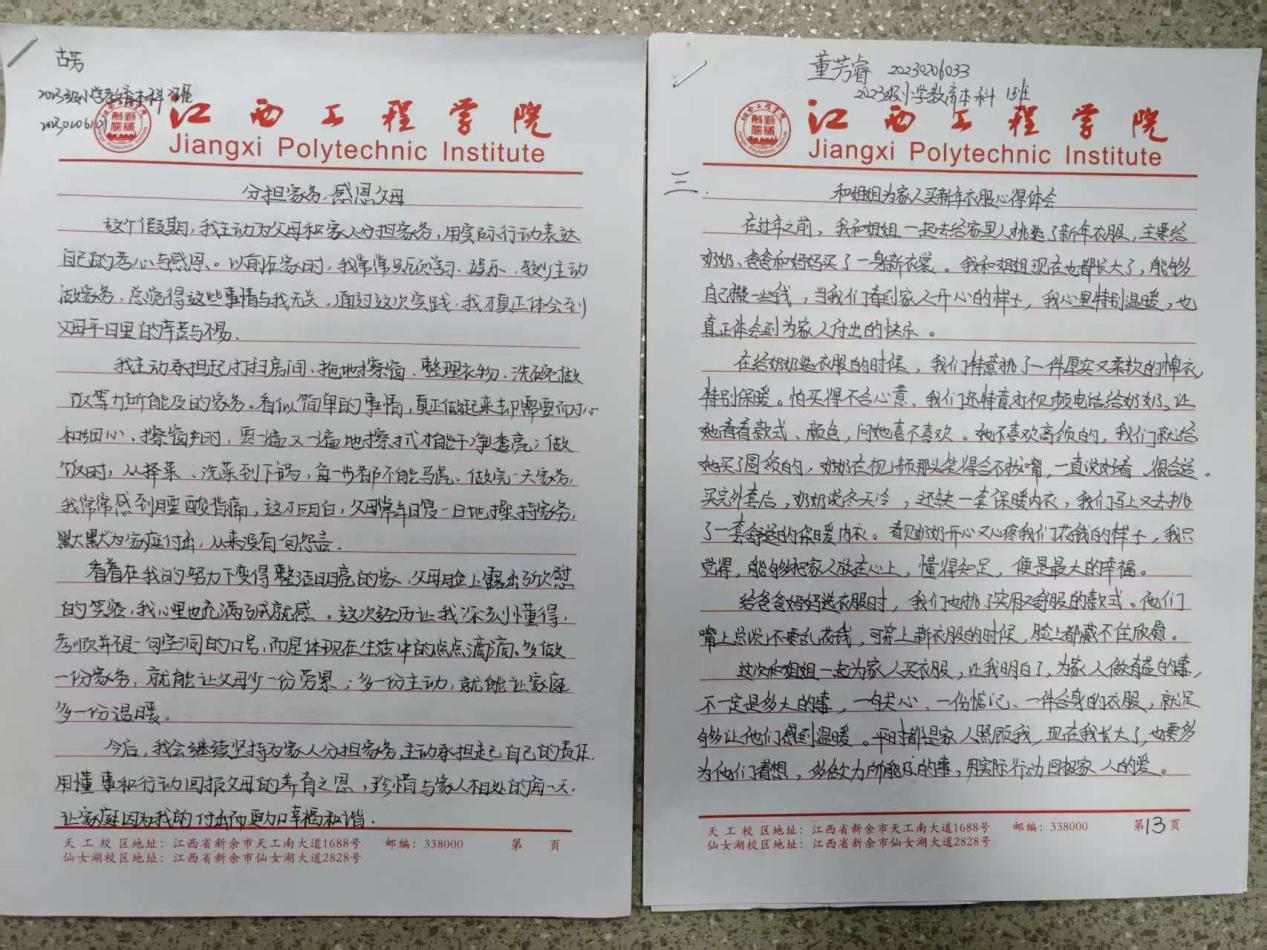 古芳
2023级小学教育本科 班
江西工程学院
Jiangxi Polytechnic Institute
分担家务·感恩父母
这个假期，我主动为父母和家人分担家务，用实际行动表达
自己的孝心与感恩。以前在家时，我常常只顾学习、娱乐，较少主动
做家务，总觉得这些事情与我无关，通过这次实践，我才真正体会到
父母平日里的辛苦与不易。
我主动承担起打扫房间、拖地擦窗、整理衣物、洗碗做
饭等力所能及的家务。看似简单的事情，真正做起来却需要耐心
和细心。擦窗户时，要一遍又一遍地擦拭才能干净透亮；做
饭时，从择菜、洗菜到下锅，每一步都不能马虎。做完一天家务，
我常常感到腰酸背痛，这才明白，父母常年日复一日地操持家务，
默默为家庭付出，从来没有一句怨言。
看着在我的努力下变得整洁明亮的家，父母脸上露出欣慰
的笑容，我心里也充满了成就感。这次经历让我深刻懂得，
孝顺并不是一句空洞的口号，而是体现在生活中的点点滴滴。多做
一份家务，就能让父母少一份劳累；多一份主动，就能让家庭
多一份温暖。
今后，我会继续坚持为家人分担家务，主动承担起自己的责任，
用懂事和行动回报父母的养育之恩，珍惜与家人相处的每一天，
让家庭因为我的付出而更加幸福和谐。
天工校区地址：江西省新余市天工南大道1688号 邮编：338000 第 页
仙女湖校区地址：江西省新余市仙女湖大道2828号
董芳睿 20230206033
2023级小学教育本科 1班
江西工程学院
Jiangxi Polytechnic Institute
三.
和姐姐为家人买新年衣服心得体会
在过年之前，我和姐姐一起去给家里人挑选了新年衣服，主要给
奶奶、爸爸和妈妈买了一身新衣裳。我和姐姐现在也都长大了，能够
自己攒一些钱，当我们看到家人开心的样子，我心里特别温暖，也
真正体会到为家人付出的快乐。
在给奶奶选衣服的时候，我们特意挑了一件厚实又柔软的棉衣，
特别保暖。怕买得不合心意，我们还特意打视频电话给奶奶，让
她看看款式、颜色，问她喜不喜欢。她不喜欢高领的，我们就给
她买了圆领的，奶奶在视频那头笑得合不拢嘴，一直说好看、很合适。
买完外套后，奶奶说冬天冷，还缺一套保暖内衣，我们马上又去挑
了一套舒适的保暖内衣。看见奶奶开心又心疼我们花钱的样子，我只
觉得，能够把家人放在心上，懂得知足，便是最大的幸福。
给爸爸妈妈选衣服时，我们也挑了实用又舒服的款式。他们
嘴上总说不要乱花钱，可穿上新衣服的时候，脸上都藏不住欣慰。
这次和姐姐一起为家人买衣服，让我明白了，为家人做有益的事，
不一定是多大的事，一句关心、一份惦记、一件合身的衣服，就足
够让他们感到温暖。平时都是家人照顾我，现在我长大了，也要多
为他们着想，多做力所能及的事，用实际行动回报家人的爱。
天工校区地址：江西省新余市天工南大道1688号 邮编：338000 第13页
仙女湖校区地址：江西省新余市仙女湖大道2828号